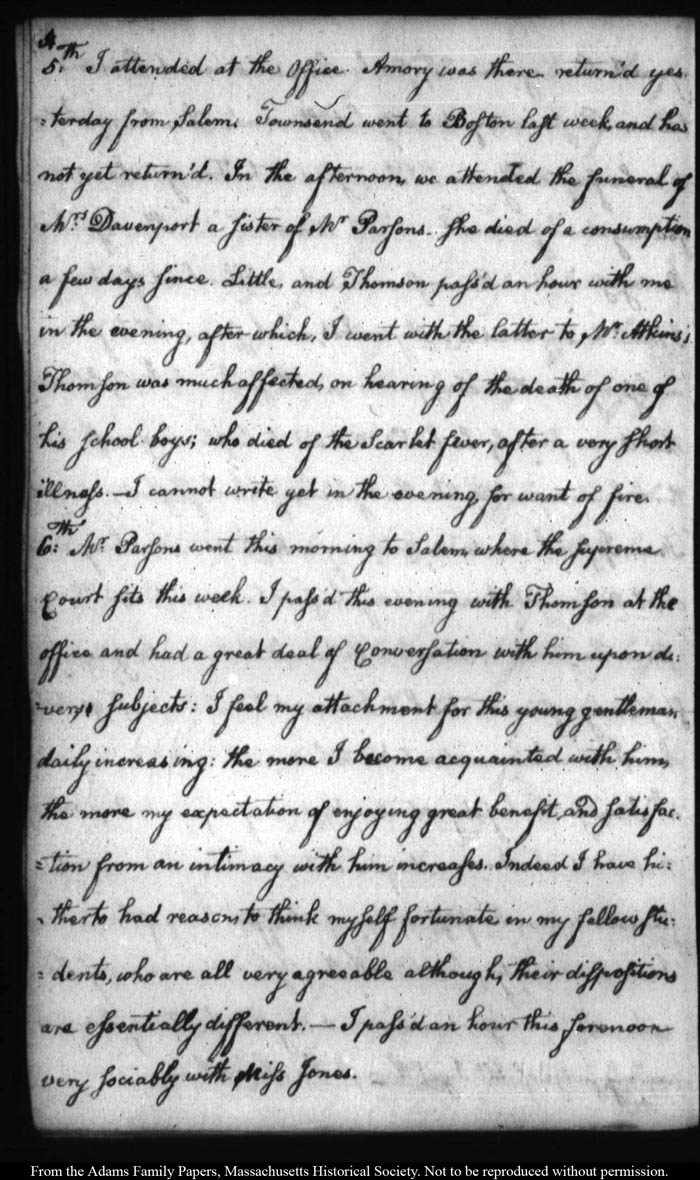 4
5.th I attended at the Office. Amory was there. return'd yes.
=terday from Salem. Townsend went to Boston last week, and has
not yet return'd. In the afternoon, we attended the funeral of
Mrs Davenport a sister of Mr Parsons. She died of a consumption
a few days since. Little, and Thomson pass'd an hour with me
in the evening, after which, I went with the latter to Mr. Atkins's
Thomson was much affected, on hearing of the death of one of
his school boys; who died of the Scarlet fever, after a very short
illness. — I cannot write yet in the evening, for want of fire.
6:th Mr. Parsons went this morning to Salem, where the supreme
Court sits this week. I pass'd this evening with Thomson at the
office and had a great deal of Conversation with him upon di:
=verse subjects: I feel my attachment for this young gentleman
daily increasing: the more I become acquainted with him,
the more my expectation of enjoying great benefit, and satisfac.
=tion from an intimacy with him increases. Indeed I have hi:
=therto had reason, to think myself fortunate, in my fellow stu:
=dents, who are all very agreeable although, their dispositions
are essentially different. — I pass'd an hour this forenoon
very sociably with Miss Jones.
From the Adams Family Papers, Massachusetts Historical Society. Not to be reproduced without permission.